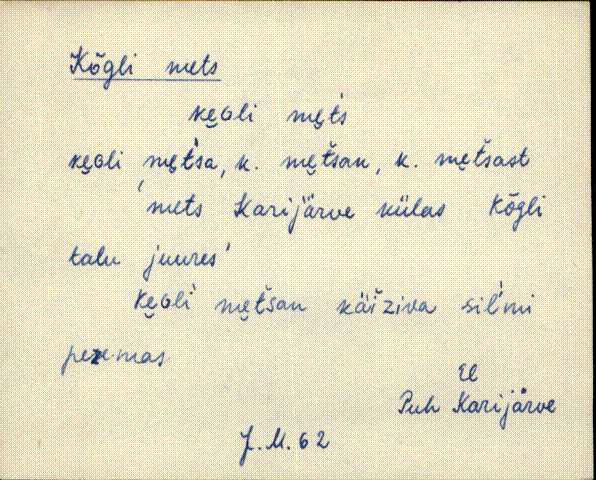 Kõgli mets
ke̮ɢli me̮t́s
ke̮ɢli me̮t̀sa, k. me̮t̆san, k. me̮t̆sast
'mets Karijärve külas Kõgli
talu juures'
ke̮ɢli me̮t̆san käĭziva siĺmi
pezemas
El
Puh Karijärve
J. M. 62